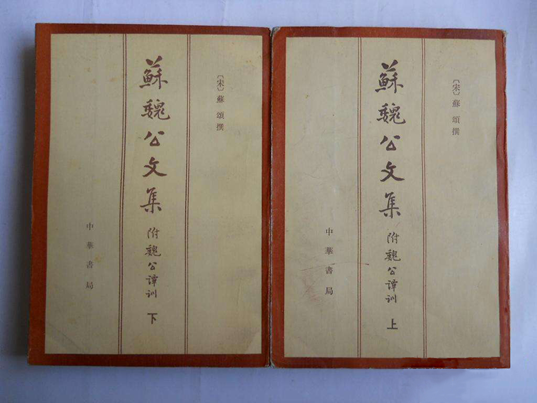 〔宋〕蘇頌撰
蘇魏公文集
附魏公譚訓
上
中華書局
〔宋〕蘇頌撰
蘇魏公文集
附魏公譚訓
下
中華書局